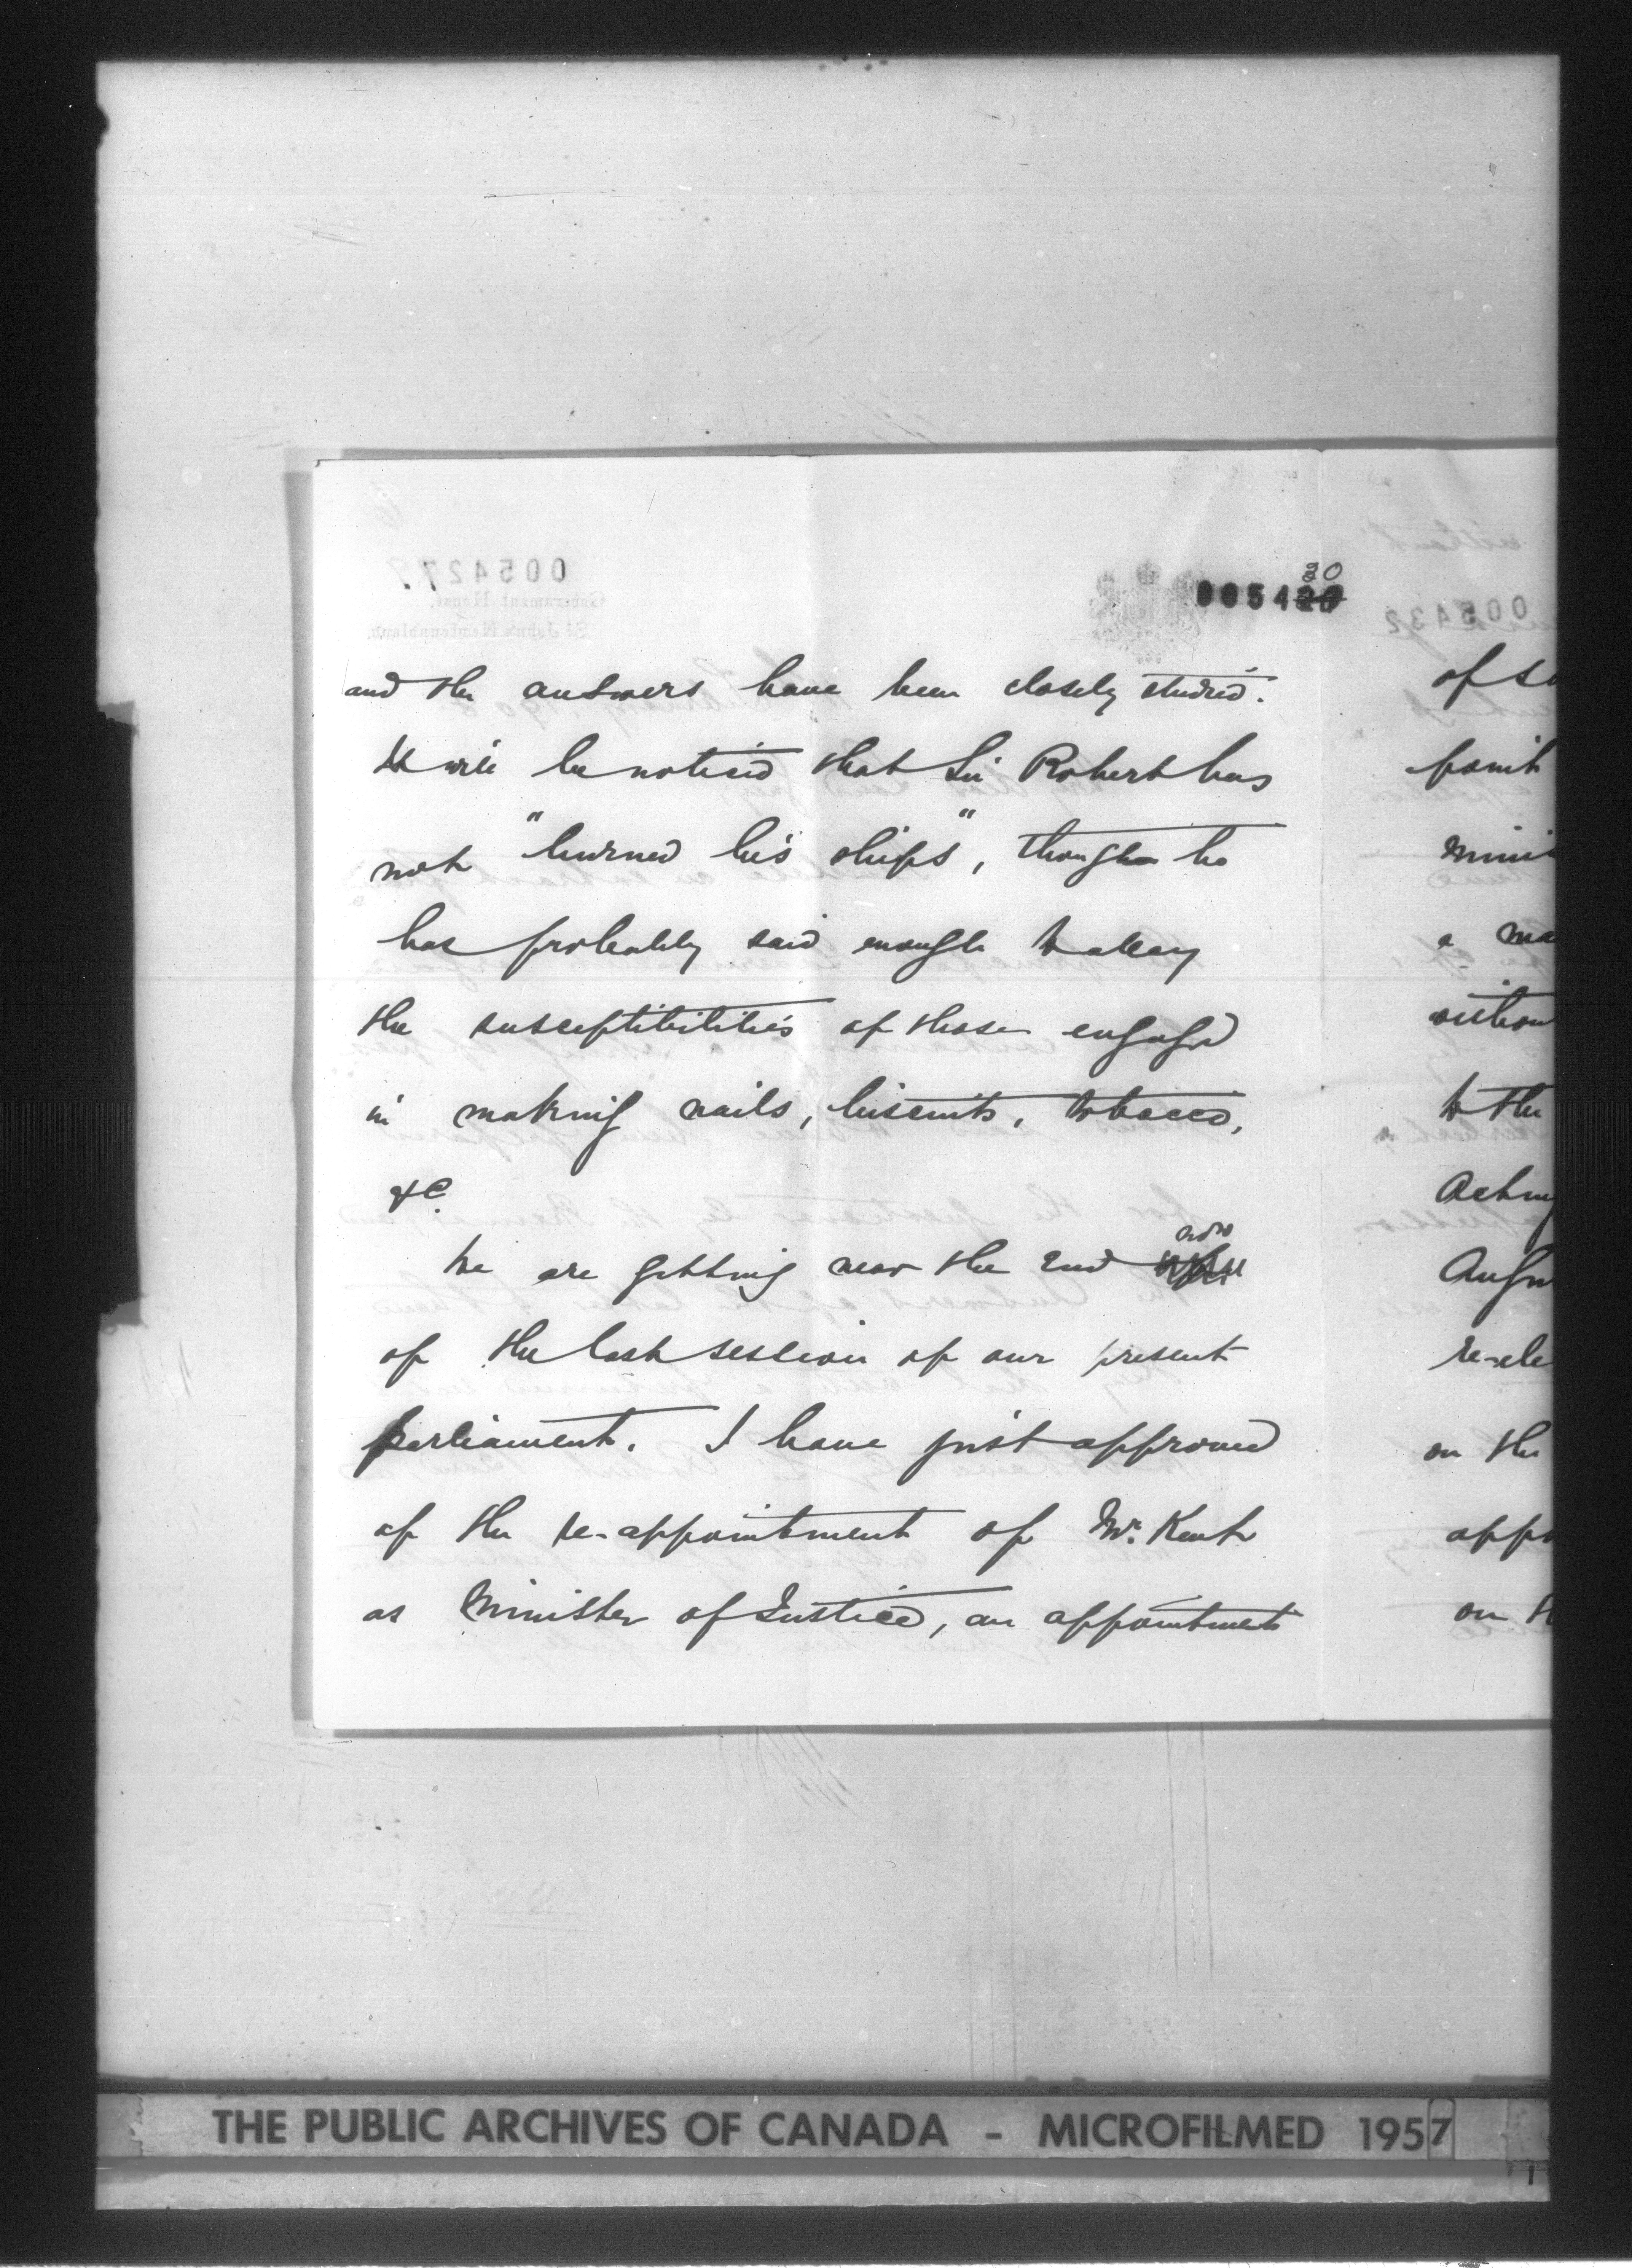 30
005429
and the answers have been closely studied.
It will be noticed that Sir Robert has
not "burned his ships", though he
has probably said enough to allay
the susceptibilities of those engaged
in making nails, biscuits, tobacco,
&c.
now
We are getting near the end
of the last session of our present
Parliament. I have just approved
of the re-appointment of Mr. Kent
as Minister of Justice, an appointment
of s
point
minis
a ma
withou
to the
Acting
Augu
re-ele
on the
appo
on t
THE PUBLIC ARCHIVES OF CANADA - MICROFILMED 1957
1